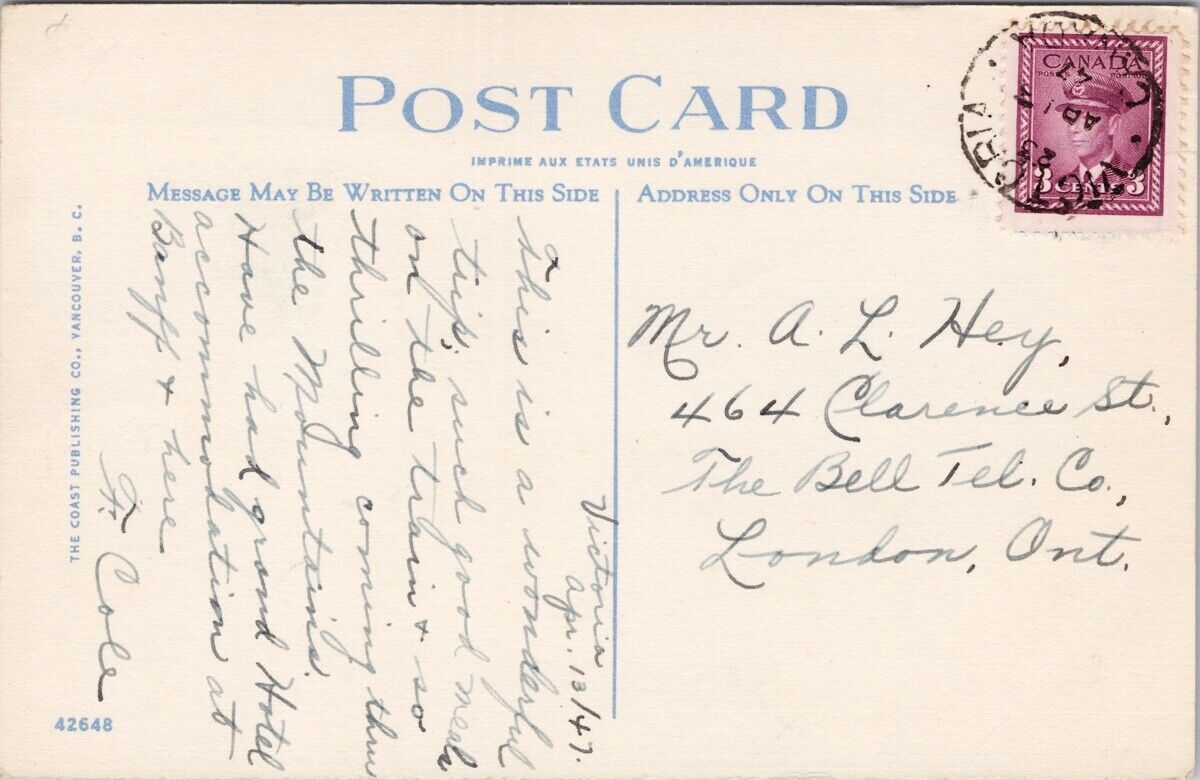 POST CARD
IMPRIME AUX ETATS UNIS D'AMERIQUE
MESSAGE MAY BE WRITTEN ON THIS SIDE
ADDRESS ONLY ON THIS SIDE
THE COAST PUBLISHING CO., VANCOUVER, B. C.
42648
Victoria
Apr. 13/47.
This is a wonderful
trip. such good meals
on the train + so
thrilling coming thru
the Mountains.
Have had grand Hotel
accommodation at
Banff + here
F. Cole
CANADA
3 CENTS 3
VICTORIA
Mr. A. L. Hey,
464 Clarence St.,
The Bell Tel. Co.,
London, Ont.